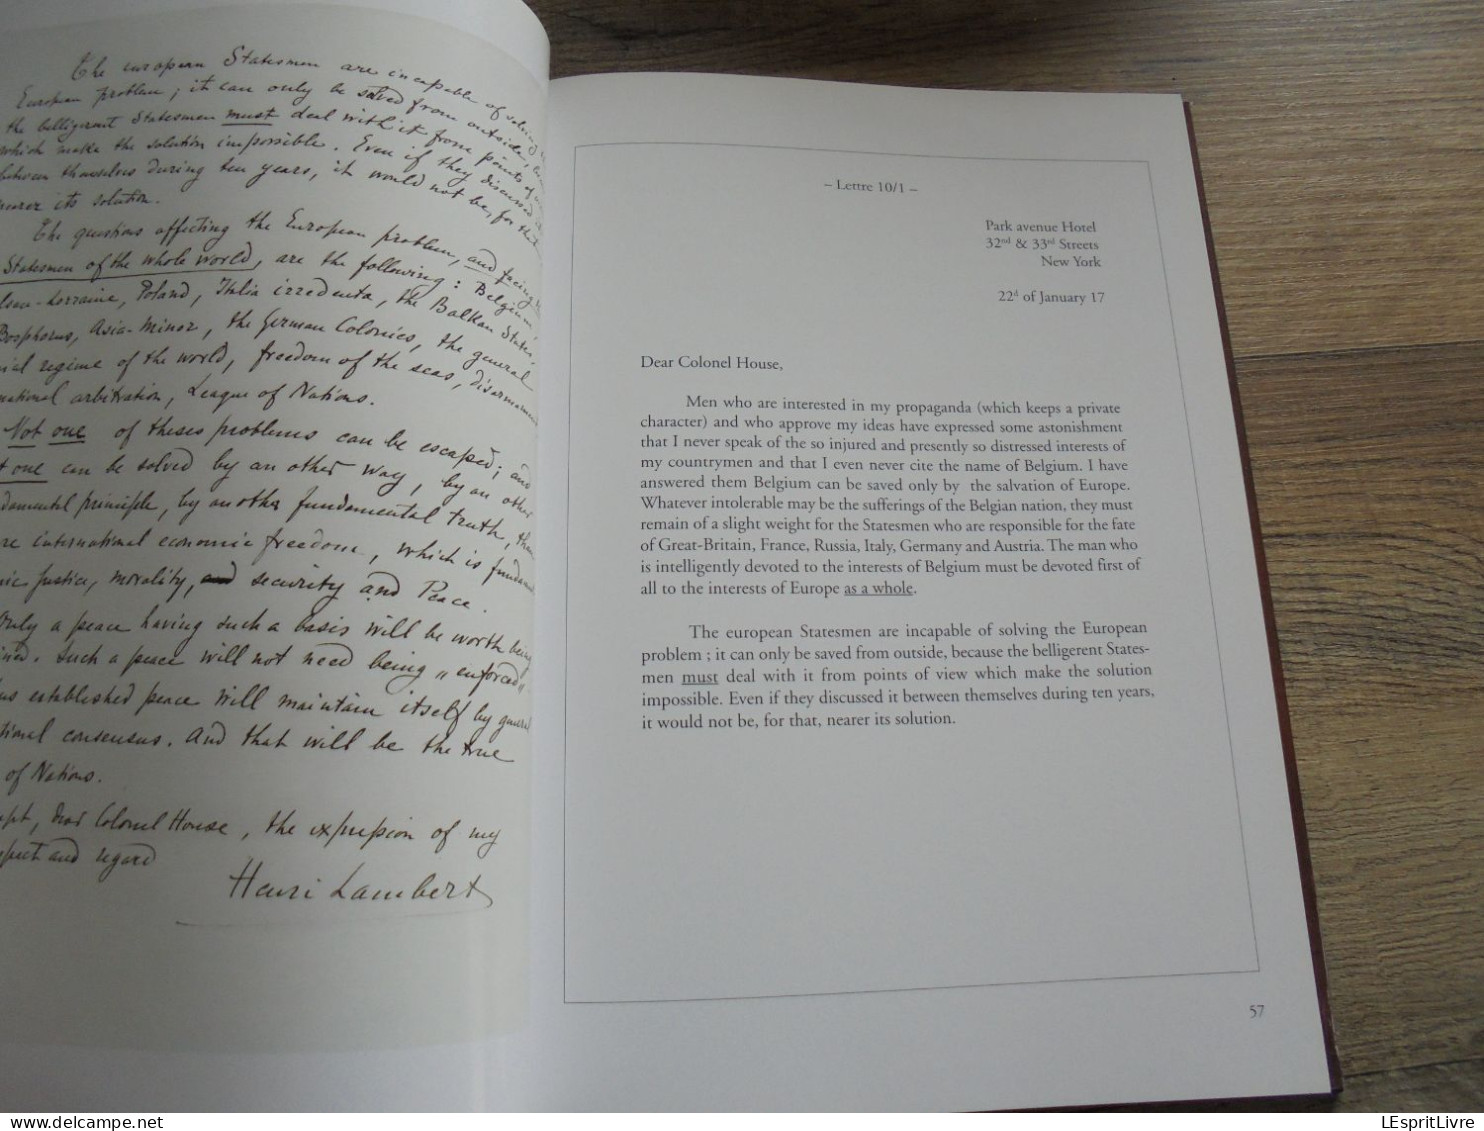 The european Statesmen are incapable of solving
European problem; it can only be solved from outside,
the belligerent Statesmen must deal with it from points of
which make the solution impossible. Even if they discussed
between themselves during ten years, it would not be, for that
nearer its solution.
The questions affecting the European problem, and facing
Statesmen of the whole world, are the following: Belgium,
Lorraine, Poland, Italia irredenta, the Balkan States,
Bosphorus, Asia-Minor, the German Colonies, the general
regime of the world, freedom of the seas, disarmament
national arbitration, League of Nations.
Not one of theses problems can be escaped; and
one can be solved by an other way, by an other
damental principle, by another fundamental truth, than
international economic freedom, which is funda
justice, morality, and security and Peace.
Only a peace having such a basis will be worth being
Such a peace will not need being „enforced"
established peace will maintain itself by general
tional consensus. And that will be the true
of Nations.
dear Colonel House, the expression of my
and regard
Henri Lambert
– Lettre 10/1 –
Park avenue Hotel
32nd & 33rd Streets
New York
22d of January 17
Dear Colonel House,
Men who are interested in my propaganda (which keeps a private
character) and who approve my ideas have expressed some astonishment
that I never speak of the so injured and presently so distressed interests of
my countrymen and that I even never cite the name of Belgium. I have
answered them Belgium can be saved only by the salvation of Europe.
Whatever intolerable may be the sufferings of the Belgian nation, they must
remain of a slight weight for the Statesmen who are responsible for the fate
of Great-Britain, France, Russia, Italy, Germany and Austria. The man who
is intelligently devoted to the interests of Belgium must be devoted first of
all to the interests of Europe as a whole.
The european Statesmen are incapable of solving the European
problem ; it can only be saved from outside, because the belligerent States-
men must deal with it from points of view which make the solution
impossible. Even if they discussed it between themselves during ten years,
it would not be, for that, nearer its solution.
57
LEspritLivre